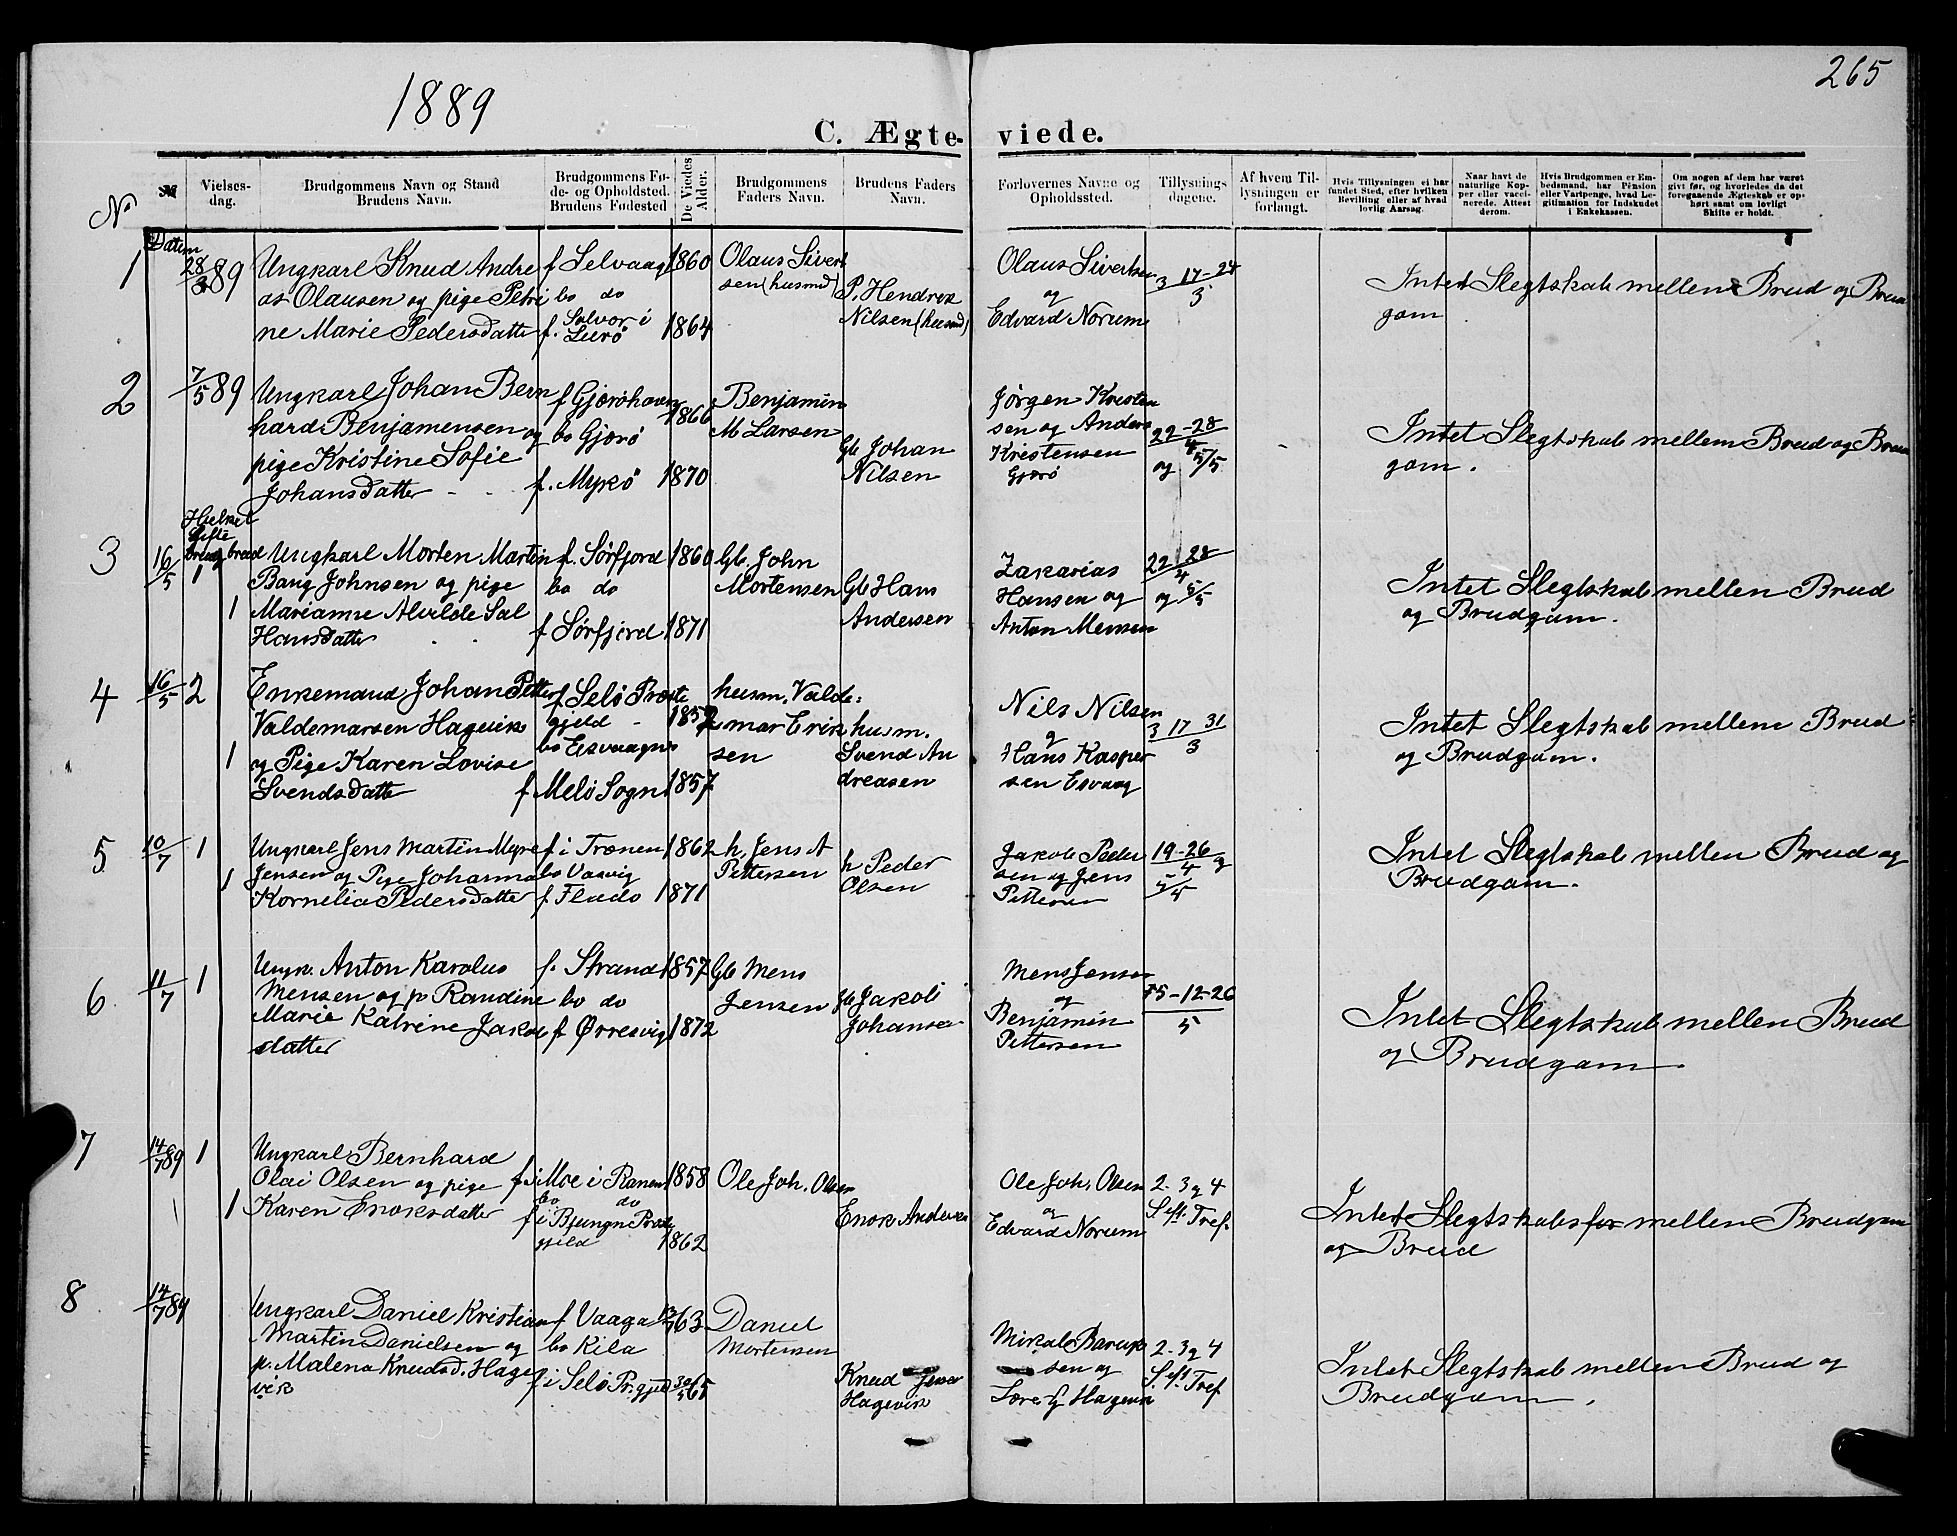 265
1889
C. Ægteviede.
No
Vielsesdag.
Brudgommens Navn og Stand
Brudens Navn.
Brudgommens Føde- og Opholdsted.
Brudens Fødested
De Viedes Alder.
Brudgommens Faders Navn.
Brudens Faders Navn.
Forlovernes Navne og Opholdssted.
Tillysningsdagene.
Af hvem Tillysningen er forlangt.
Hvis Tillysningen ei har fundet Sted, efter hvilken Bevilling eller af hvad lovlig Aarsag.
Naar havt de naturlige Kopper eller vaccinerede. Attest derom.
Hvis Brudgommen er Embedsmand, har Pension eller Vartpenge, hvad Legitimation for Indskudet i Enkekassen.
Om nogen af dem har været givt før, og hvorledes da det foregaaende Ægteskab er ophørt samt om lovligt Skifte er holdt.
Datum
1
28/3 89
Ungkarl Knud Andre
as Olausen og pige Petri
ne Marie Pedersdatter
f Selvaag
bo do
f. Selvor i
Lurø
1860
1864
Olaus Sivert
sen (husmd)
P. Hendrik
Nilsen (husmd)
Olaus Sivertsen
og
Edvard Norum
3 17-24
3
Intet Slegtskab mellem Brud og Brud
gom
2
7/5 89
Ungkarl Johan Bern
hard Benjamensen og
pige Kristine Sofie
Johansdatter
f Gjærøhavn
bo Gjærø
f. Myrkø
1866
1870
Benjamin
M Larsen
Gb Johan
Nilsen
Jørgen Kristen
sen og Anders
Kristensen
Gjærø
22-28
4
og 5/5
Intet Slegtskab mellem Brud og Brud
gom.
3
16/5
Hvilket
Gifte
brudg brud
1
1
Ungkarl Morten Martin
Bang Johnsen og pige
Marianne Alvilde Sal
Hansdatter
f. Sørfjord
bo do
f Sørfjord
1860
1871
Gb. John
Mortensen
Gb Hans
Andersen
Zakarias
Hansen og
Anton Mensen
22 28
4
og 5/5
Intet Slegtskab mellem Brud
og Brudgam.
4
16/5
2
1
Enkemand Johan Petter
Valdemarsen Hagevik
og Pige Karen Lovise
Svendsdatter
f Selø Præste
gjeld
bo Esvaagnes
f Melø Sogn
1852
1857
husm. Valde:
mar Erik
sen
husm.
Svend An
dreasen
Nils Nilsen
og
Hans Kasper
sen Esvaag
3 17 31
3
Intet Slegtskab mellem Brud
og Brudgam.
5
10/7
1
1
Ungkarl Jens Martin Myre
Jensen og Pige Johanna
Kornelia Pedersdatter
f i Trænen
bo Vasvig
f Flado
1862
1871
h. Jens A
Pettersen
h Peder
Olsen
Jakob Peder
sen og Jens
Pettersen
19-26 og
4
5/5
Intet Slegtskab mellem Brud og
Brudgam.
6
11/7
1
Ungk. Anton Karolus
Mensen og p Randine
Marie Katrine Jakobs
datter
f. Strand
bo do
f Ørresvig
1857
1872
Gb Mens
Jensen
Gb Jakob
Johansen
Mens Jensen
og
Benjamin
Pettersen
5-12-26
5
Intet Slegtskab mellem Brud
og Brudgam.
7
14/7 89
1
1
Ungkarl Bernhard
Olai Olsen og pige
Karen Enoksdatter
f i Moe i Ranen
bo do
f i Bjungn Præste
gjeld
1858
1862
Ole Joh. Olsen
Enok Andersen
Ole Joh. Olsen
og
Edvard Norum
2. 3 og 4
S. eft. Tref.
Intet Slegtskabsfor mellem Brudgam
og Brud
8
14/7 89
Ungkarl Daniel Kristian
Martin Danielsen og
p. Malena Knudsd. Hage
vik
f Vaaga
bo Kila
f i Selø Pr.gjeld
63
65
Daniel
Mortensen
Knud Jensen
Hagevik
Mikal Barup
sen og
Hagevik
2. 3 og 4
S. eft. Tref
Intet Slegtskab mellem Brud og
Brudgam.